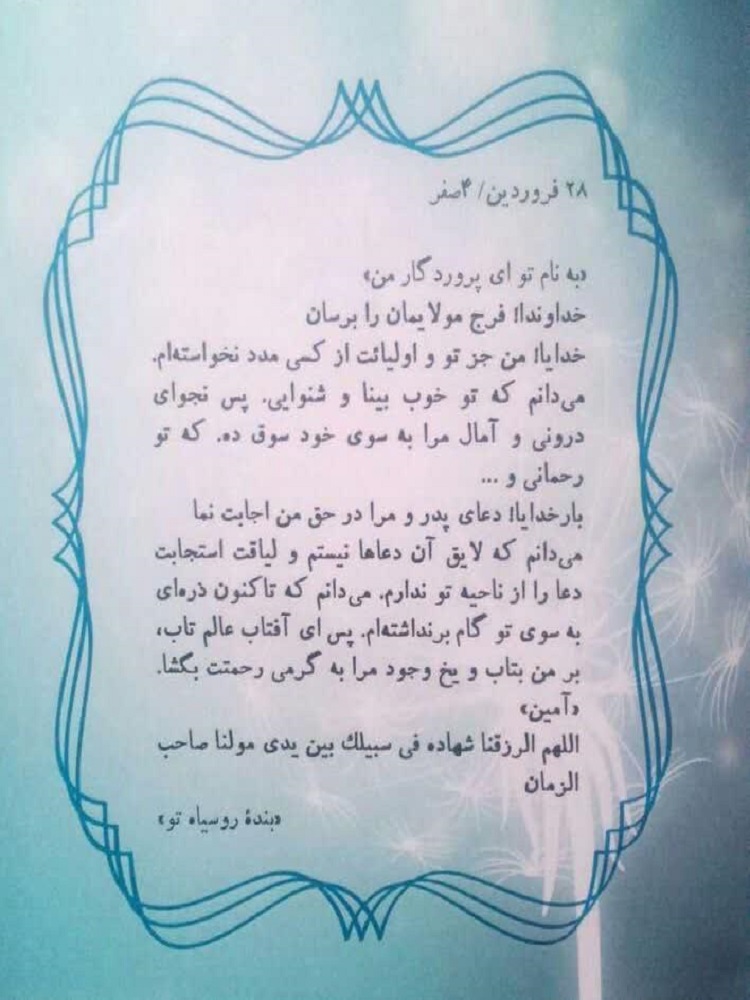 ۲۸ فروردین/ ۴صفر
«به نام تو ای پروردگار من»
خداوندا! فرج مولایمان را برسان
خدایا! من جز تو و اولیائت از کسی مدد نخواسته‌ام.
می‌دانم که تو خوب بینا و شنوایی. پس نجوای
درونی و آمال مرا به سوی خود سوق ده. که تو
رحمانی و ...
بارخدایا! دعای پدر و مرا در حق من اجابت نما
می‌دانم که لایق آن دعاها نیستم و لیاقت استجابت
دعا را از ناحیه تو ندارم. می‌دانم که تاکنون ذره‌ای
به سوی تو گام برنداشته‌ام. پس ای آفتاب عالم تاب،
بر من بتاب و یخ وجود مرا به گرمی رحمتت بگشا.
«آمین»
اللهم الرزقنا شهاده فی سبیلك بین یدی مولنا صاحب
الزمان
«بندهٔ روسیاه تو»